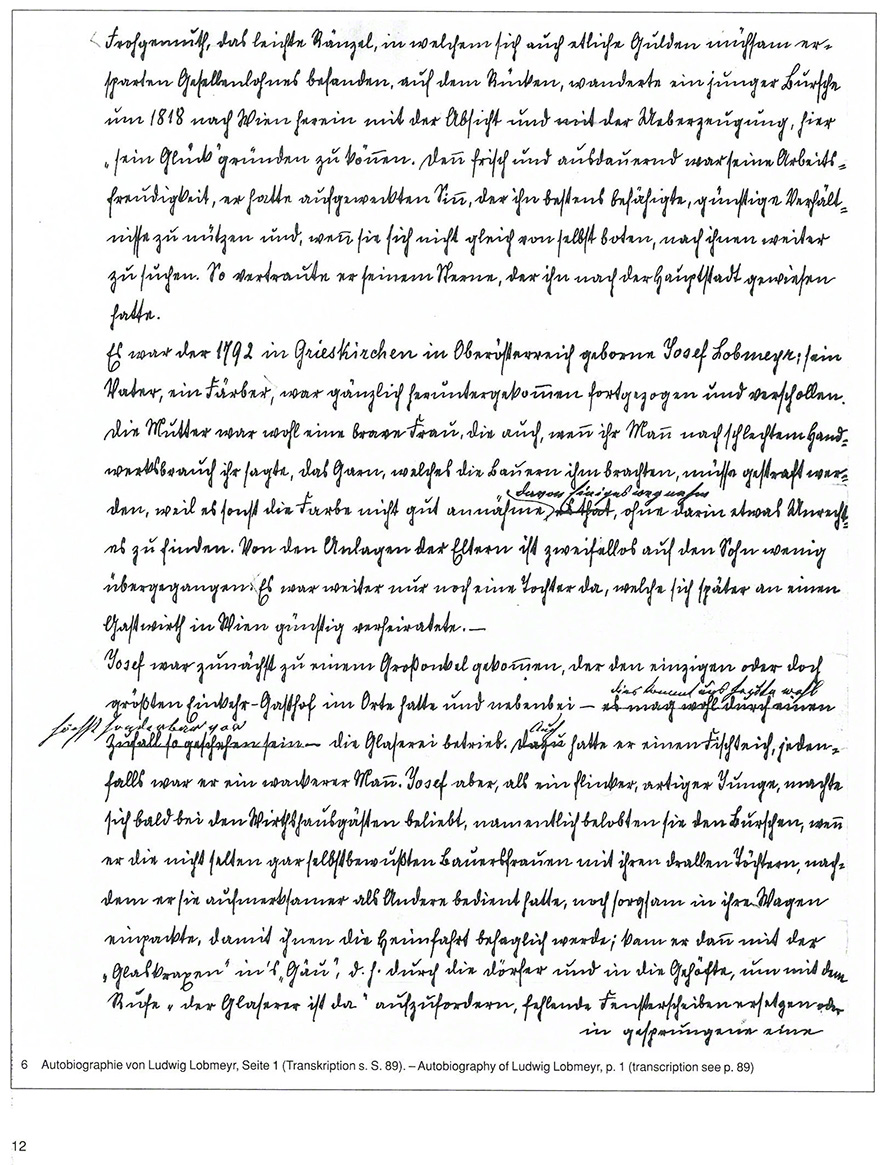 Frohgemuth, das leichte Ränzel, in welchem sich auch etliche Gulden mühsam er-
sparten Gesellenlohnes befanden, auf dem Rücken, wanderte ein junger Bursche
um 1818 nach Wien herein mit der Absicht und mit der Ueberzeugung, hier
„sein Glück“ gründen zu kön̄en. Den̄ frisch und ausdauernd war seine Arbeits-
freudigkeit, er hatte aufgeweckten Sin̄, der ihn bestens befähigte, günstige Verhält-
nisse zu nützen und, wen̄ sie sich nicht gleich von selbst boten, nach ihnen weiter
zu suchen. So vertraute er seinem Sterne, der ihn nach der Hauptstadt gewiesen
hatte.
Es war der 1792 in Grieskirchen in Oberösterreich geborne Josef Lobmeyr; sein
Vater, ein Färber, war gänzlich heruntergekom̄en fortgezogen und verschollen.
Die Mutter war wohl eine brave Frau, die auch, wen̄ ihr Man̄ nach schlechtem Hand-
werksbrauch ihr sagte, das Garn, welches die Bauern ihm brachten, müsse gestraft wer-
davon Einiges wegnahm
den, weil es sonst die Farbe nicht gut annähme, es that, ohne darin etwas Unrecht-
es zu finden. Von den Anlagen der Eltern ist zweifellos auf den Sohn wenig
übergegangen. Es war weiter nur noch eine Tochter da, welche sich später an einen
Gastwirth in Wien günstig verheiratete. —
Josef war zunächst zu einem Großonkel gekom̄en, der den einzigen oder doch
dies kommt uns heute wohl
größten Einkehr-Gasthof im Orte hatte und nebenbei — es mag wohl durch einen
höchst sonderbar vor
Auch
Zufall so geschehen sein — die Glaserei betrieb. Dazu hatte er einen Fischteich, jeden-
falls war er ein wackerer Man̄. Josef aber, als ein flinker, artiger Junge, machte
sich bald bei den Wirthshausgästen beliebt, namentlich belobten sie den Burschen, wen̄
er die nicht selten gar selbstbewußten Bauersfrauen mit ihren drallen Töchtern, nach-
dem er sie aufmerksamer als Andere bedient hatte, noch sorgsam in ihre Wagen
einpackte, damit ihnen die Heimfahrt behaglich werde; kam er dan̄ mit der
„Glaskraxen“ in's „Gäu“, d. h. durch die Dörfer und in die Gehöfte, um mit dem
Rufe „der Glaserer ist da“ aufzufordern, fehlende Fensterscheiben ersetzen oder
in gesprungene eine
6 Autobiographie von Ludwig Lobmeyr, Seite 1 (Transkription s. S. 89). – Autobiography of Ludwig Lobmeyr, p. 1 (transcription see p. 89)
12